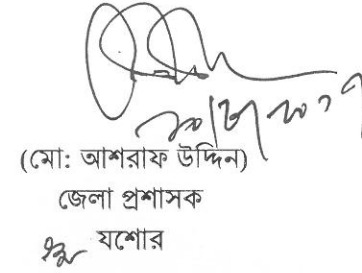 (মো: আশরাফ উদ্দিন)
জেলা প্রশাসক
যশোর